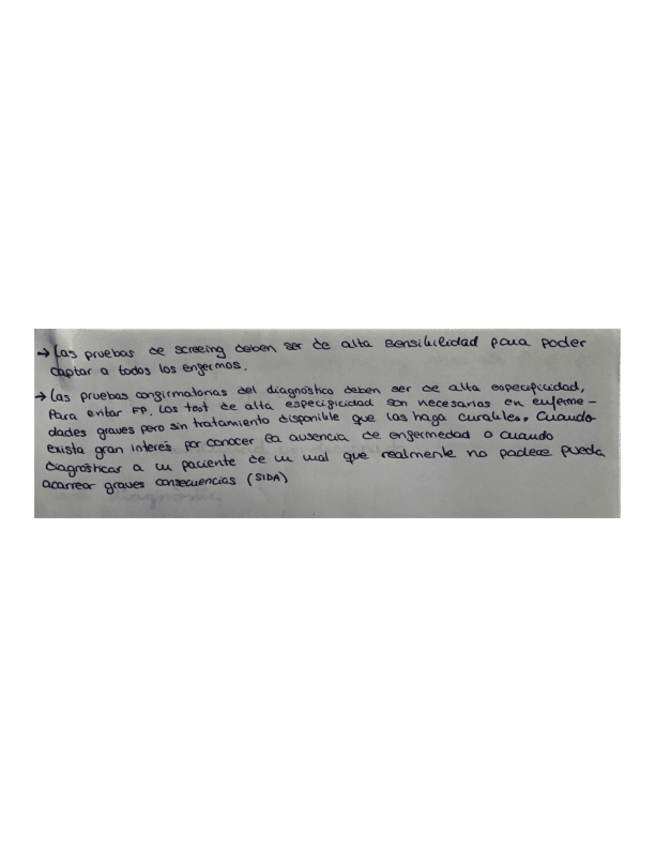 → Las pruebas de screeing deben ser de alta sensibilidad para poder
captar a todos los enfermos.
→ Las pruebas confirmatorias del diagnóstico deben ser de alta especificidad,
Para evitar FP. Los test de alta especificidad son necesarios en enferme-
dades graves pero sin tratamiento disponible que las haga curables. Cuando
exista gran interés por conocer la ausencia de enfermedad o cuando
diagnósticar a un paciente de un mal que realmente no padece pueda
acarrear graves consecuencias (SIDA)